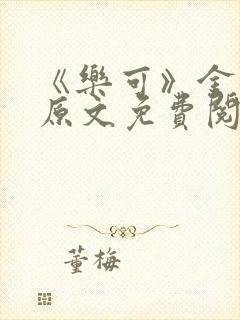 《樂可》全
原文免費閱
董梅